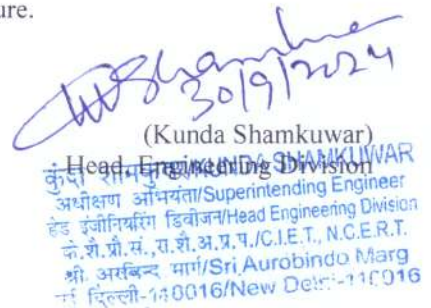 ure.
30/9/2024
(Kunda Shamkuwar)
Head, Engineering Division
कुंदा शामकुवर/KUNDA SHAMKUWAR
अधीक्षण अभियंता/Superintending Engineer
हेड इंजीनियरिंग डिवीजन/Head Engineering Division
के.शै.प्रौ.सं.,रा.शै.अ.प्र.प./C.I.E.T., N.C.E.R.T.
श्री अरबिन्द मार्ग/Sri Aurobindo Marg
नई दिल्ली-110016/New Delhi-110016